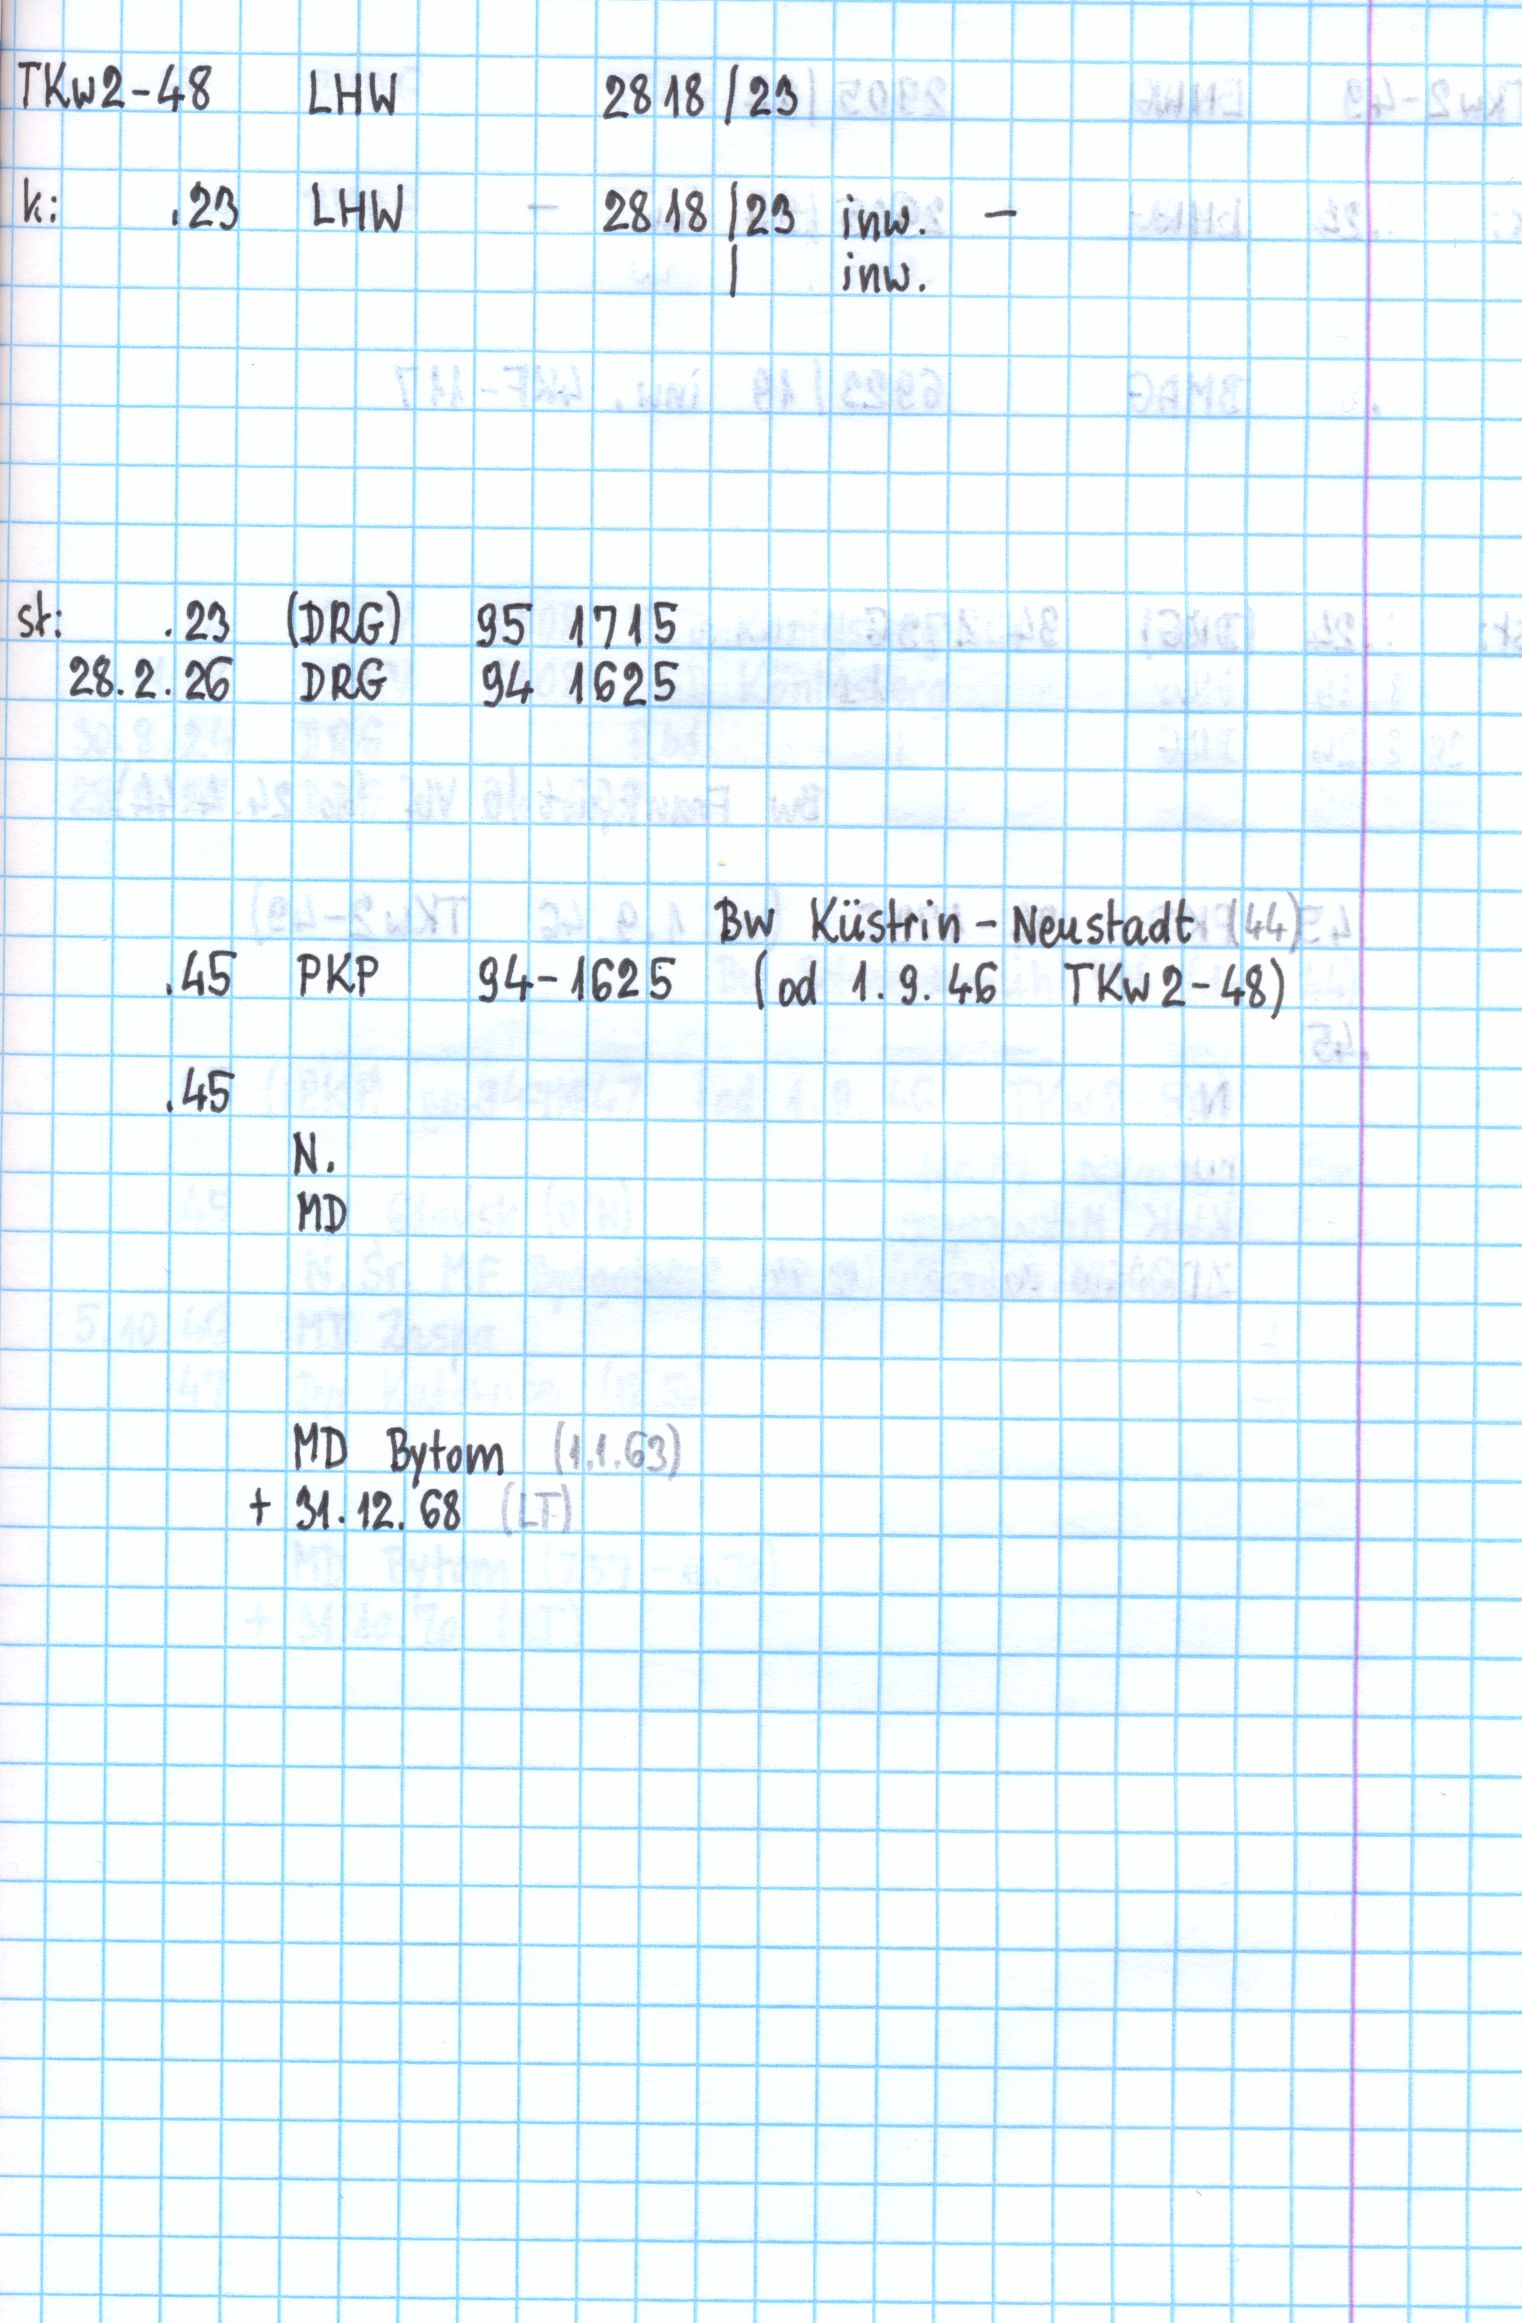 TKw2-48 LHW 2818/23
k: .23 LHW - 2818/23 inw. -
/ inw.
st: .23 (DRG) 95 1715
28.2.26 DRG 94 1625
Bw Küstrin-Neustadt (44)
.45 PKP 94-1625 (od 1.9.46 TKw2-48)
.45
N.
MD
MD Bytom (1.1.63)
+ 31.12.68 (LT)